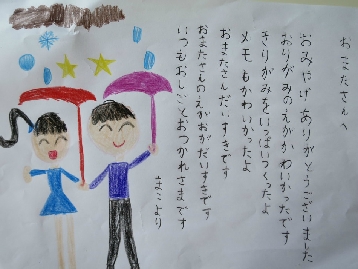 おまたさんへ
おみやげありがとうございました
おりがみのえがかわいかったです
きりがみをいっぱいつくったよ
メモもかわいかったよ
おまたさんだいすきです
おまたさんのえがおがだいすきです
いつもおしごとおつかれさまです
まこより